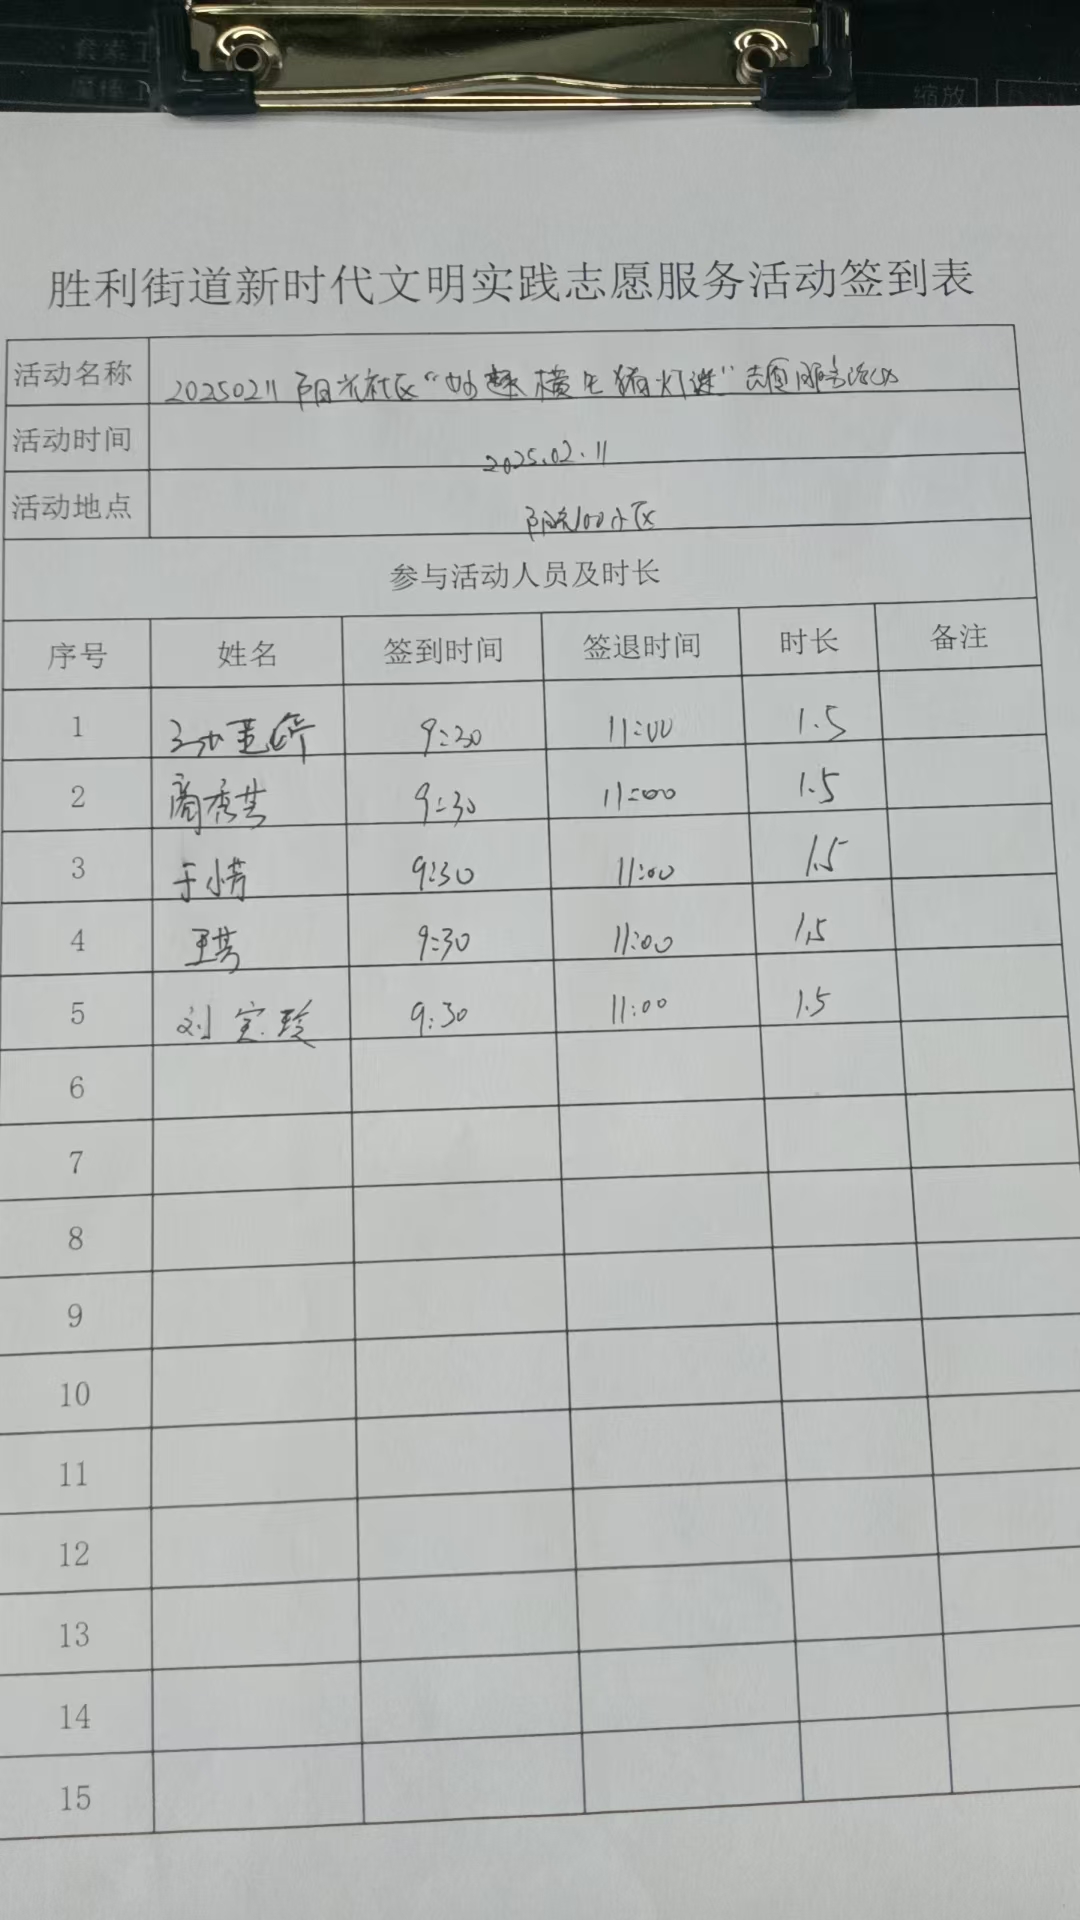 胜利街道新时代文明实践志愿服务活动签到表
活动名称 20250211阳光社区“妙趣横生猜灯谜”志愿服务活动
活动时间 2025.02.11
活动地点 阳光100小区
参与活动人员及时长
序号 姓名 签到时间 签退时间 时长 备注
1 9:30 11:00 1.5
2 9:30 11:00 1.5
3 于小芳 9:30 11:00 1.5
4 王芸 9:30 11:00 1.5
5 刘宝玲 9:30 11:00 1.5
6
7
8
9
10
11
12
13
14
15